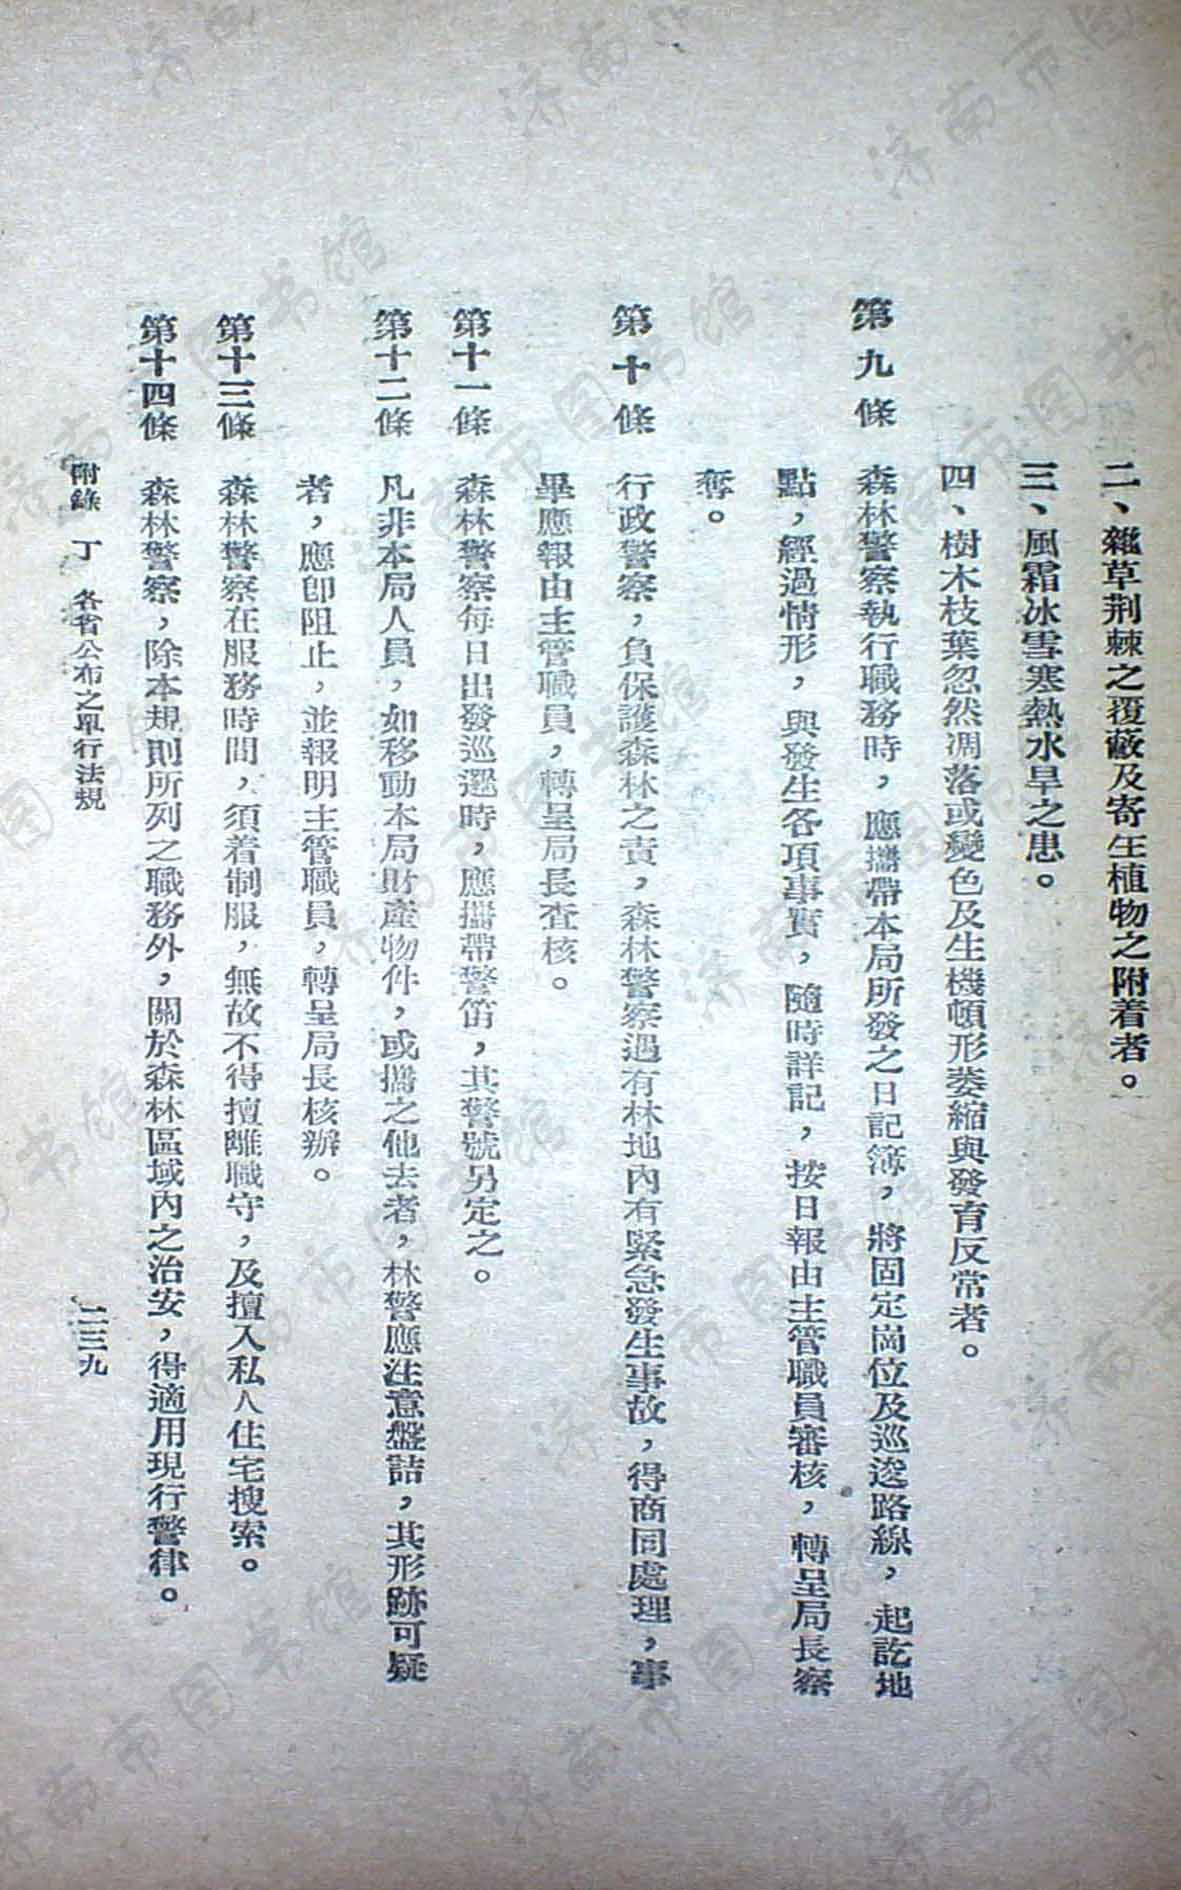 二、雜草荆棘之覆蔽及寄生植物之附着者。
三、風霜冰雪寒熱水旱之患。
四、樹木枝葉忽然凋落或變色及生機頓形萎縮與發育反常者。
第九條　森林警察執行職務時，應攜帶本局所發之日記簿，將固定崗位及巡邏路線，起訖地
點，經過情形，與發生各項事實，隨時詳記，按日報由主管職員審核，轉呈局長察
奪。
第十條　行政警察，負保護森林之責，森林警察遇有林地內有緊急發生事故，得商同處理，事
畢應報由主管職員，轉呈局長查核。
第十一條　森林警察每日出發巡邏時，應攜帶警笛，其警號另定之。
第十二條　凡非本局人員，如移動本局財產物件，或攜之他去者，林警應注意盤詰，其形跡可疑
者，應卽阻止，並報明主管職員，轉呈局長核辦。
第十三條　森林警察在服務時間，須着制服，無故不得擅離職守，及擅入私人住宅搜索。
第十四條　森林警察，除本規則所列之職務外，關於森林區域內之治安，得適用現行警律。
附錄　丁　各省公布之單行法規　二三九
济南市图书馆